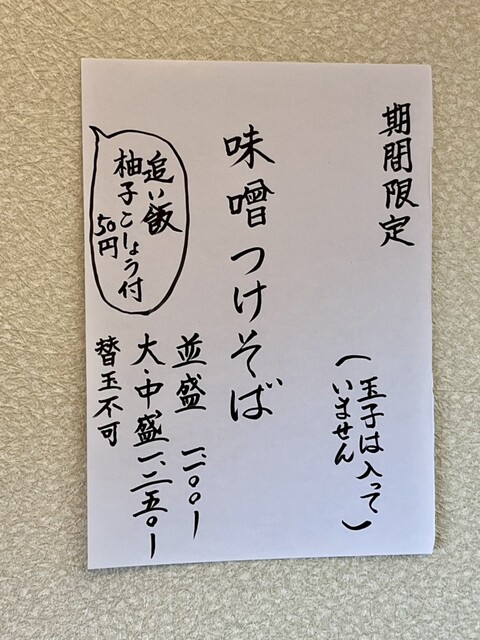 期間限定
(玉子は入って
いません)
味噌つけそば
並盛 一、一〇〇ー
大・中盛 一、二五〇ー
替玉不可
追い飯
柚子こしょう付
50円